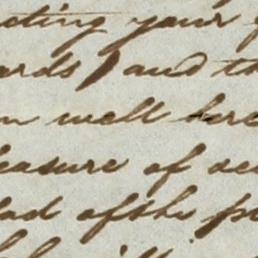 cting your
ards) and th
n well here
easure of see
lad of the pr